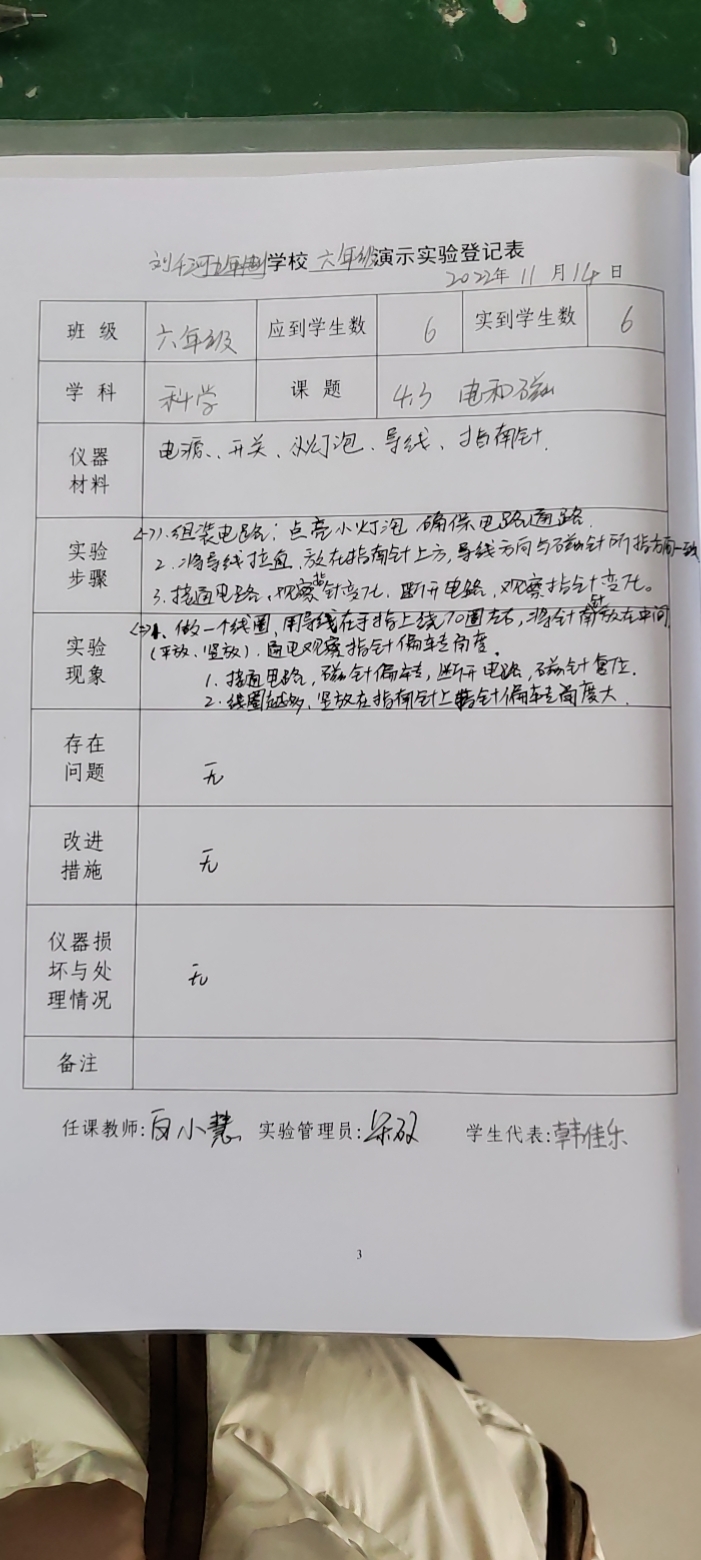 刘千河九年制学校 六年级演示实验登记表
2022年 11 月 14 日
班 级 六年级 应到学生数 6 实到学生数 6
学 科 科学 课 题 4.3 电和磁
仪器材料 电源、开关、小灯泡、导线、指南针.
实验步骤 <一>1.组装电路：点亮小灯泡 确保电路通路.
2.将导线拉直,放在指南针上方,导线方向与磁针所指方向一致
3.接通电路,观察指针变化.断开电路,观察指针变化。
实验现象 <二>1、做一个线圈,用导线在手指上绕10圈左右,将指南针放在中间
(平放、竖放).通电观察指针偏转角度.
1.接通电路,磁针偏转,断开电路,磁针复位.
2.线圈越多、竖放在指南针上指针偏转角度大.
存在问题 无
改进措施 无
仪器损坏与处理情况 无
备注
任课教师: 小慧 实验管理员: 学生代表:韩佳乐
3